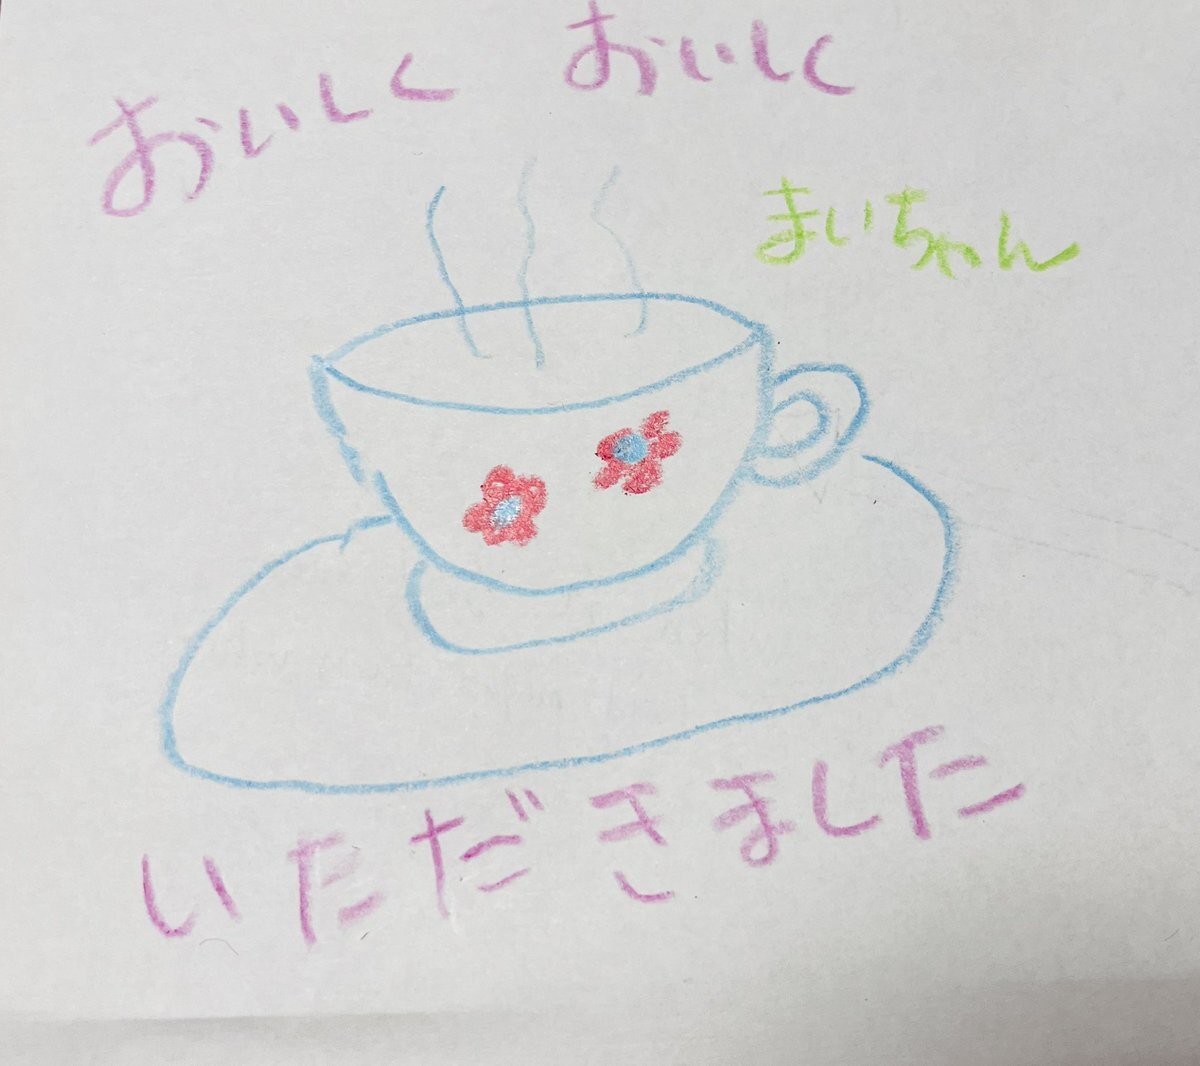 おいしく おいしく
まいちゃん
いただきました